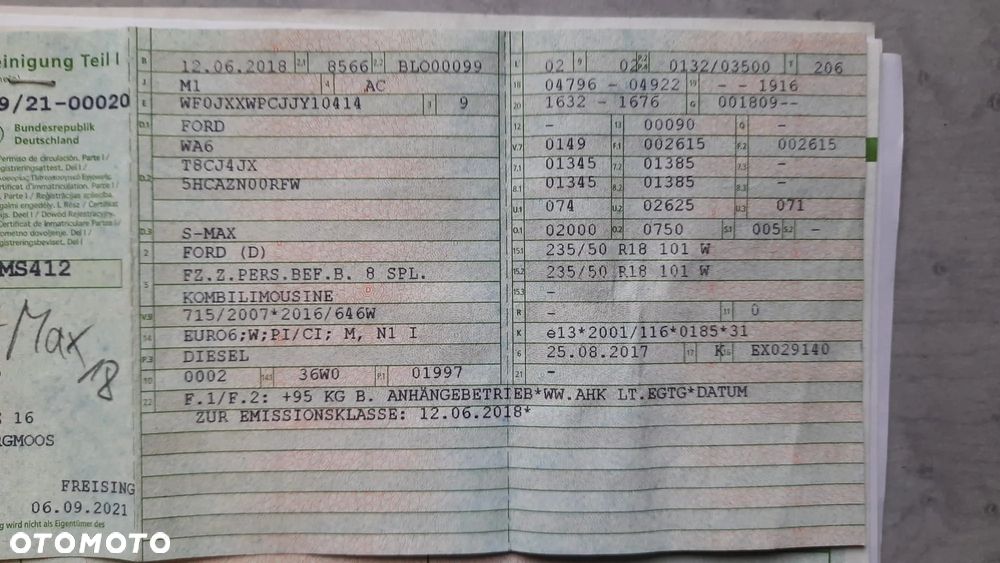 einigung Teil I
9/21-00020
Bundesrepublik
Deutschland
Permiso de circulación. Parte I /
MS412
-Max
18
16
RGMOOS
FREISING
06.09.2021
g wird nicht als Eigentümer des
B 12.06.2018 2.1 8566 2.2 BLO00099
J M1 4 AC
E WF0JXXWPCJJY10414 3 9
D.1 FORD
D.2 WA6
T8CJ4JX
5HCAZN00RFW
D.3 S-MAX
2 FORD (D)
5 FZ.Z.PERS.BEF.B. 8 SPL.
KOMBILIMOUSINE
V.9 715/2007*2016/646W
14 EURO6;W;PI/CI; M, N1 I
P.3 DIESEL
10 0002 14.1 36W0 P.1 01997
L 02 9 02 P.2 P.4 0132/03500 T 206
18 04796 - 04922 19 - - 1916
20 1632 - 1676 G 001809--
12 - 13 00090 Q -
V.7 0149 F.1 002615 F.2 002615
7.1 01345 7.2 01385 7.3 -
8.1 01345 8.2 01385 8.3 -
U.1 074 U.2 02625 U.3 071
O.1 02000 O.2 0750 S.1 005 S.2 -
15.1 235/50 R18 101 W
15.2 235/50 R18 101 W
15.3 -
R - 11 0
K e13*2001/116*0185*31
6 25.08.2017 17 K 16 EX029140
21 -
22 F.1/F.2: +95 KG B. ANHÄNGEBETRIEB*WW.AHK LT.EGTG*DATUM
ZUR EMISSIONSKLASSE: 12.06.2018*
OTOMOTO